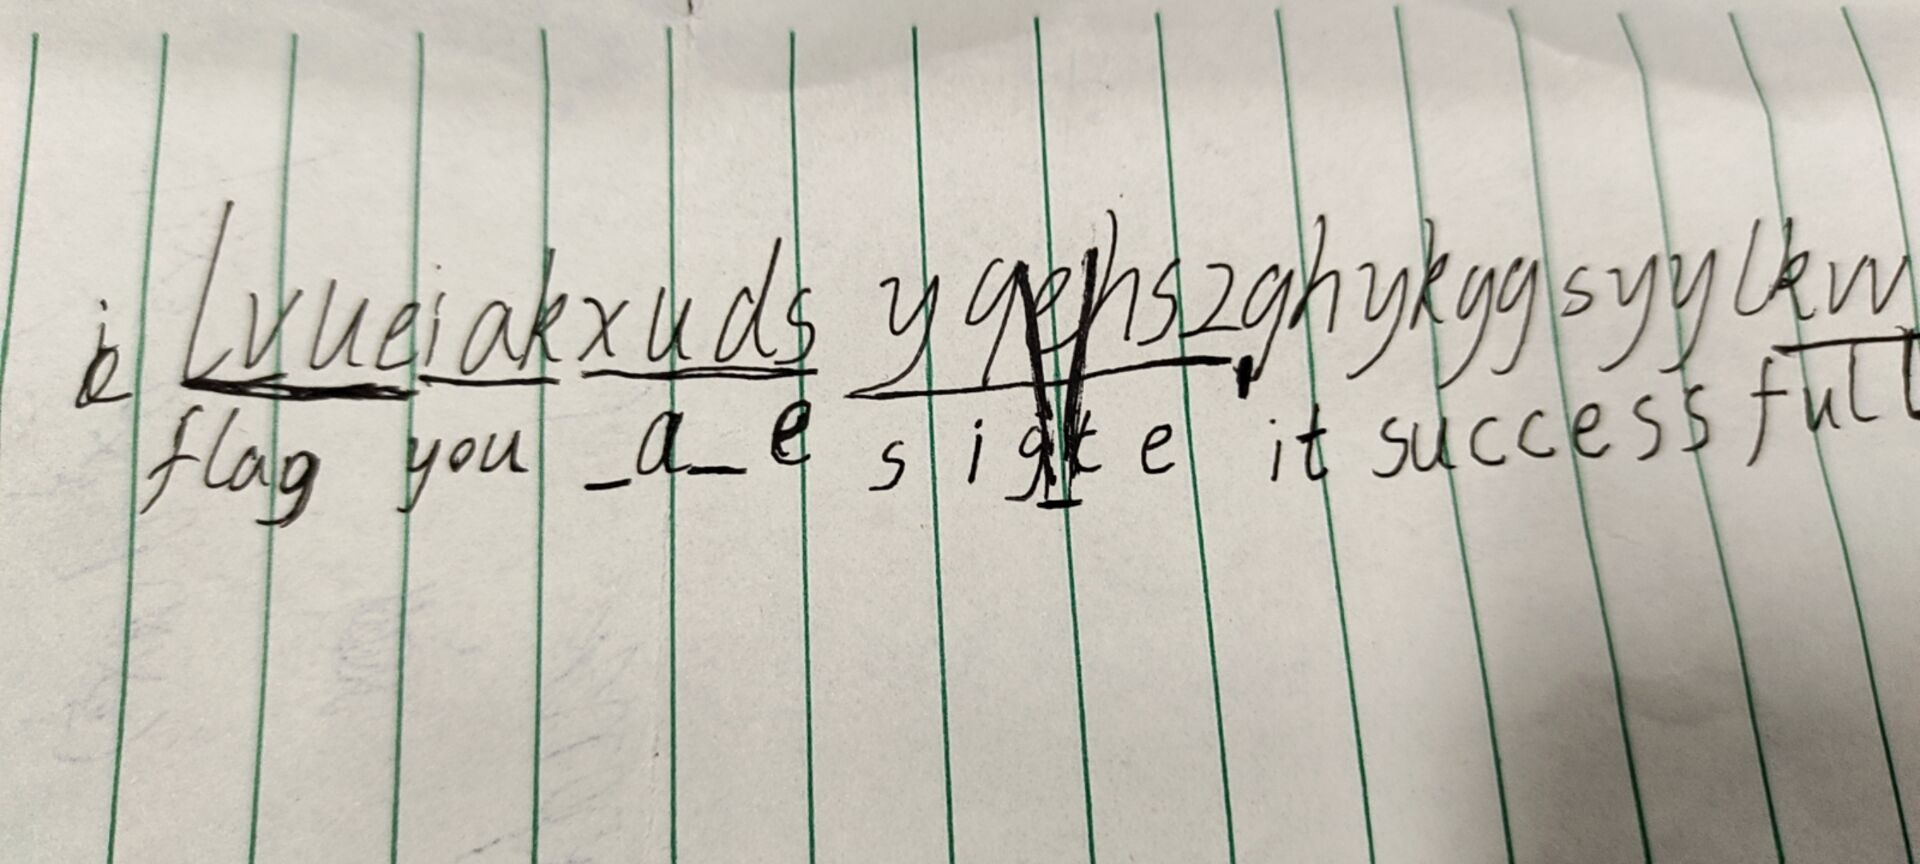 Lvueiakxuds yqehszghykggsyylkvv
flag you _a_e sigte it success full